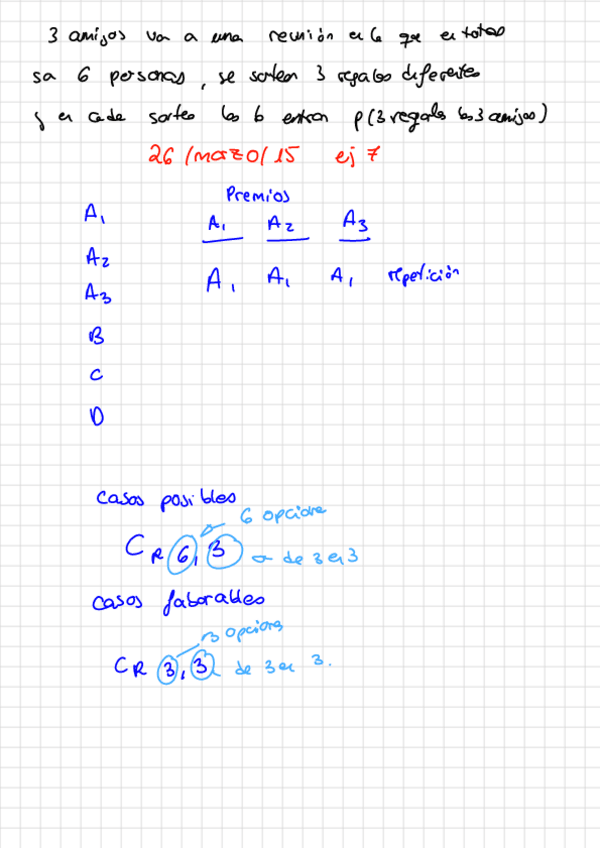 3 amigos va a una reunión en la que en total
sa 6 personas, se sortean 3 regalos diferentes
y en cada sorteo los 6 entran p(3 regalos los 3 amigos)
26/marzo/15 ej 7
Premios
A1 A1 A2 A3
A2
A3 A1 A1 A1 repetición
B
C
D
Casos posibles
6 opciones
CR 6, 3 de 3 en 3
Casos faborables
3 opciones
CR 3, 3 de 3 en 3.